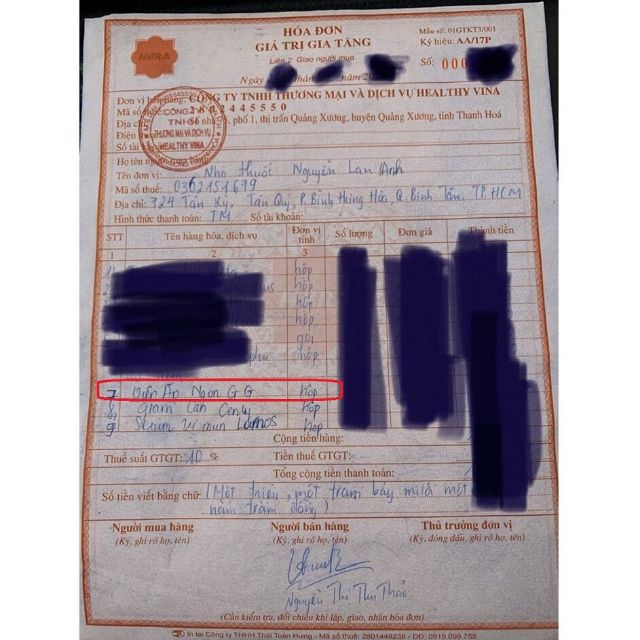 HÓA ĐƠN
GIÁ TRỊ GIA TĂNG
Liên 2: Giao người mua
Mẫu số: 01GTKT3/001
Ký hiệu: AA/17P
Số: 000
Ngày
HERA
Đơn vị bán hàng: CÔNG TY TNHH THƯƠNG MẠI VÀ DỊCH VỤ HEALTHY VINA
Mã số thuế: 2802445550
phố 1, thị trấn Quảng Xương, huyện Quảng Xương, tỉnh Thanh Hoá
Điện
Số tài
CÔNG TY
TNHH
THƯƠNG MẠI VÀ DỊCH VỤ
HEALTHY VINA
Họ tên người mua hàng:
Tên đơn vị: Nhà thuốc Nguyễn Lan Anh
Mã số thuế: 0302151679
Địa chỉ: 724 Tân Kỳ, Tân Quý, P. Bình Hưng Hòa, Q. Bình Tân, TP. HCM
Hình thức thanh toán: TM Số tài khoản:
STT Tên hàng hóa, dịch vụ Đơn vị tính Số lượng Đơn giá Thành tiền
1 2 3
hộp
hộp
hộp
hộp
gói
hộp
7 Viên Ăn Ngon GG hộp
8 Giảm Cân Cenly hộp
9 Serum Trị mụn hộp
Cộng tiền hàng:
Thuế suất GTGT: 10 % Tiền thuế GTGT:
Tổng cộng tiền thanh toán:
Số tiền viết bằng chữ: (Một triệu, một trăm bảy mươi một
năm trăm đồng)
Người mua hàng Người bán hàng Thủ trưởng đơn vị
(Ký, ghi rõ họ, tên) (Ký, ghi rõ họ, tên) (Ký, đóng dấu, ghi rõ họ, tên)
Nguyễn Thị Thu Thảo
(Cần kiểm tra, đối chiếu khi lập, giao, nhận hóa đơn)
In tại Công ty TNHH Thái Toàn Hưng - Mã số thuế: 2801448238 - DĐ: 0919.099.755